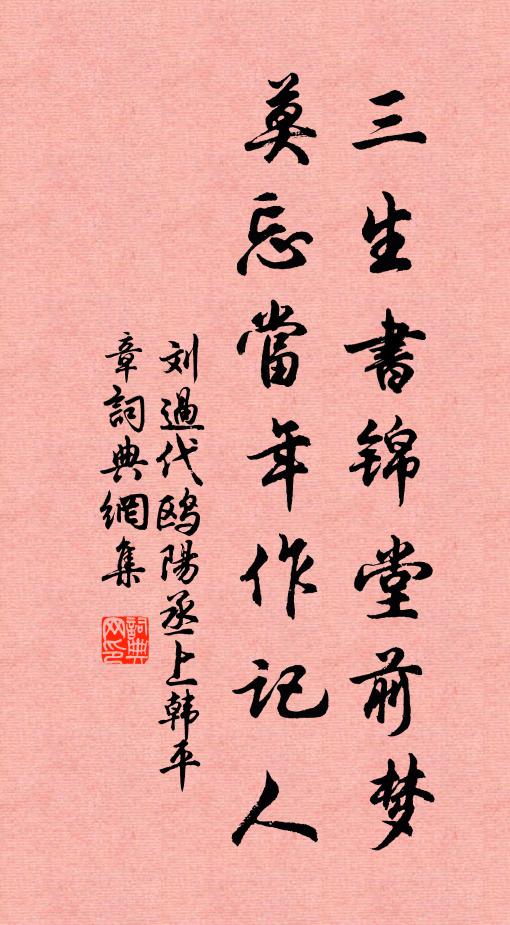 三生書锦堂前梦
莫忘當年作记人
刘過代鸥陽丞上韩平
章詞典網集
詞典网印